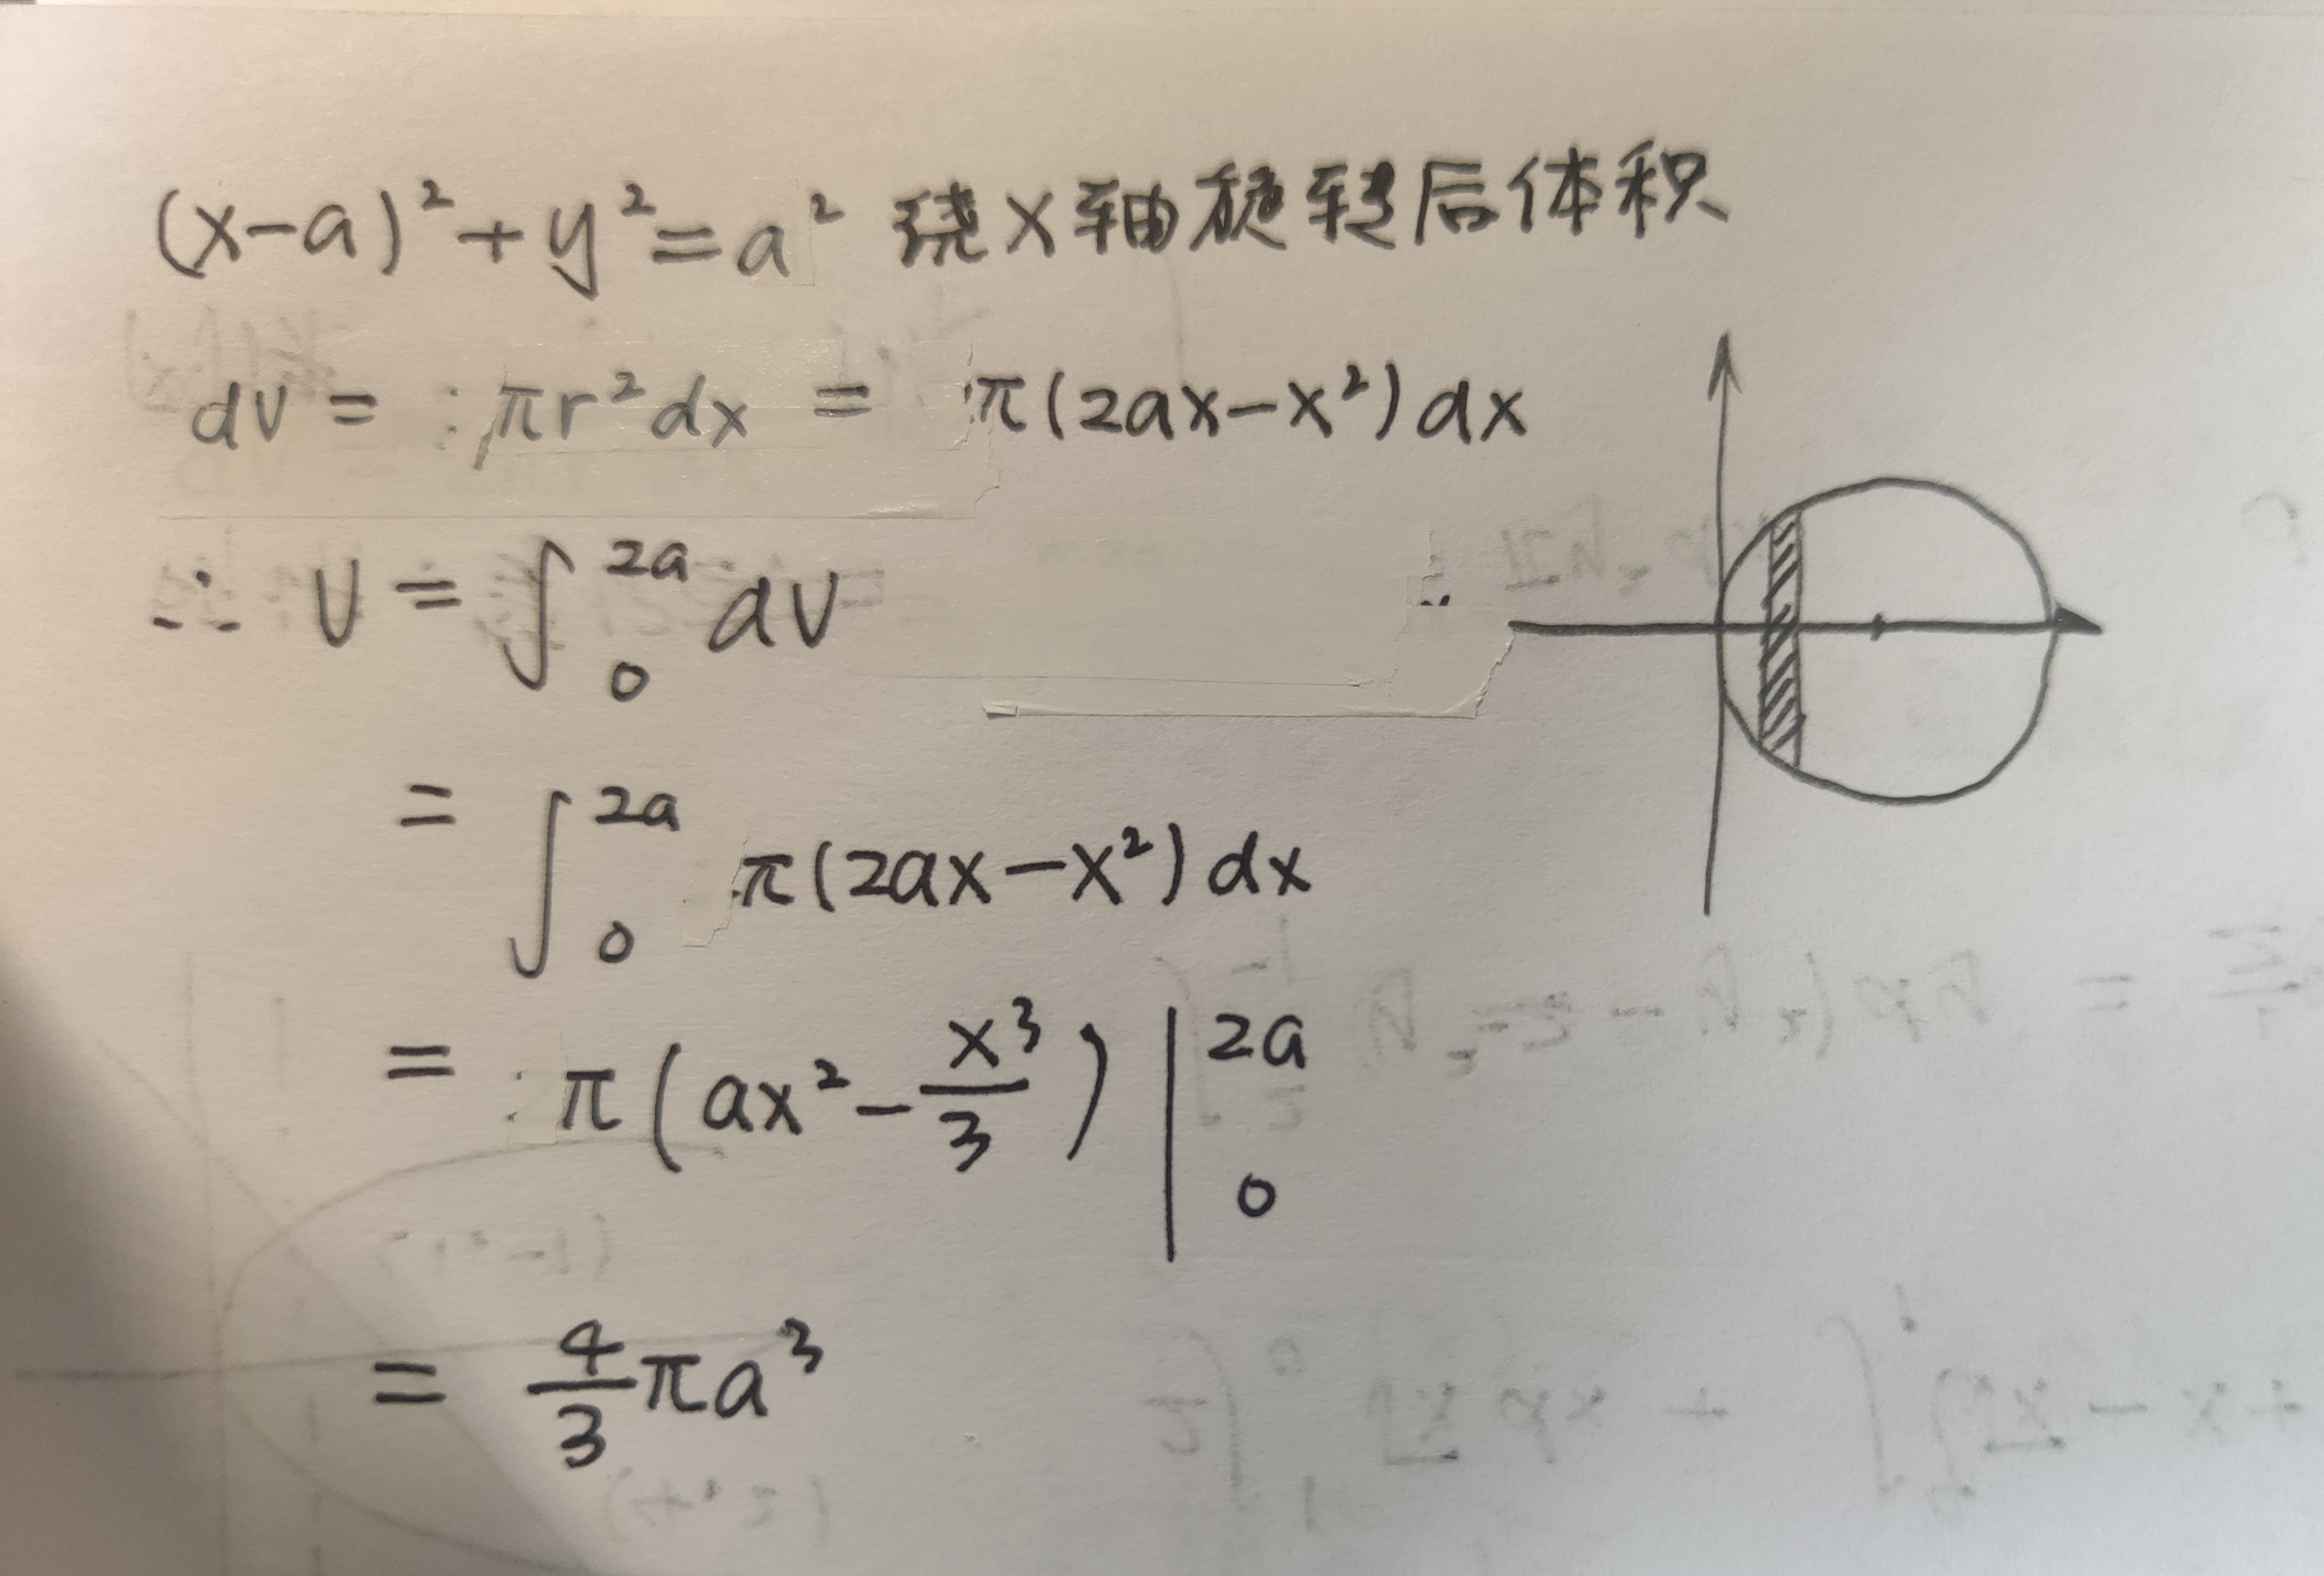 (x-a)²+y²=a² 绕X轴旋转后体积
dV = πr²dx = π(2ax-x²)dx
∴ V = ∫₀²ᵃ dV
= ∫₀²ᵃ π(2ax-x²)dx
= π(ax²-x³/3)|₀²ᵃ
= 4/3 πa³